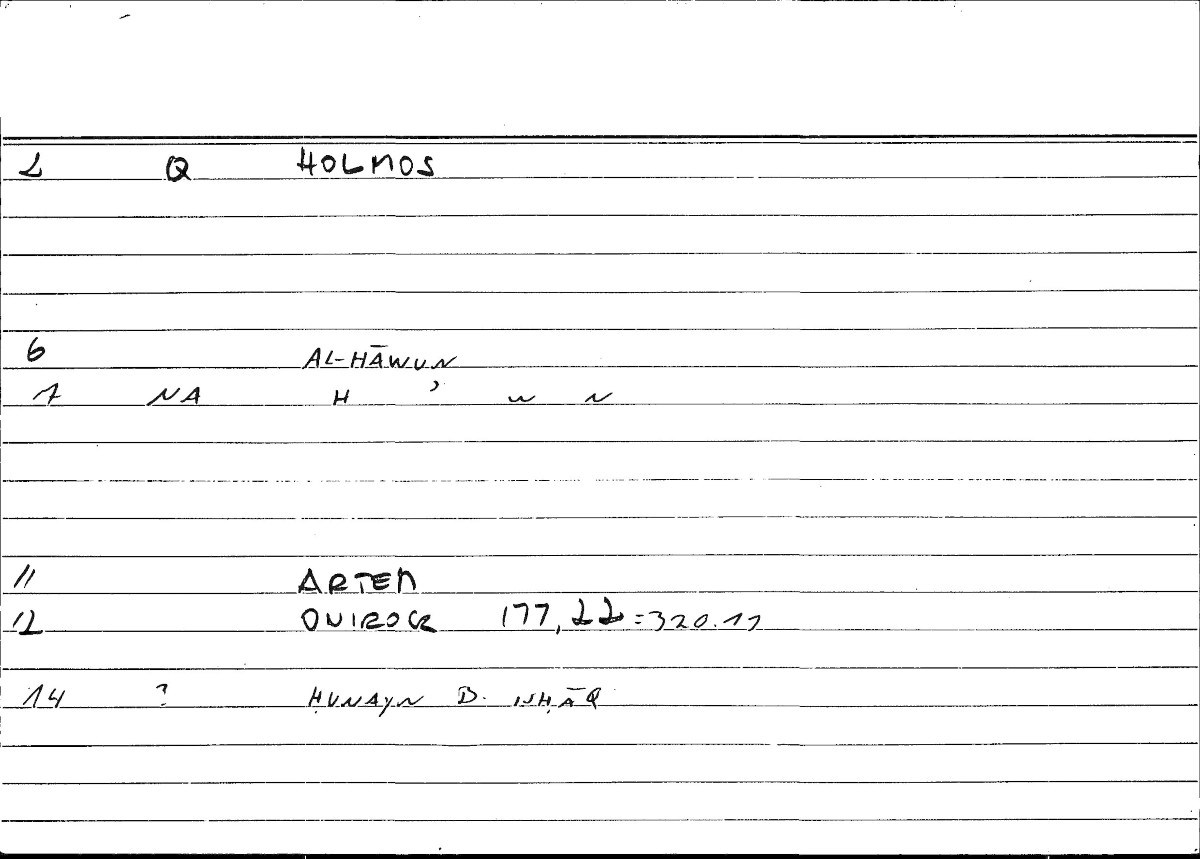 2 Q HOLMOS
6 AL-HĀWUN
7 NA H ʾ W N
11 ARTEM
12 ONIROCR 177, 22 = 320.11
14 ? ḤUNAYN B. ISḤĀQ